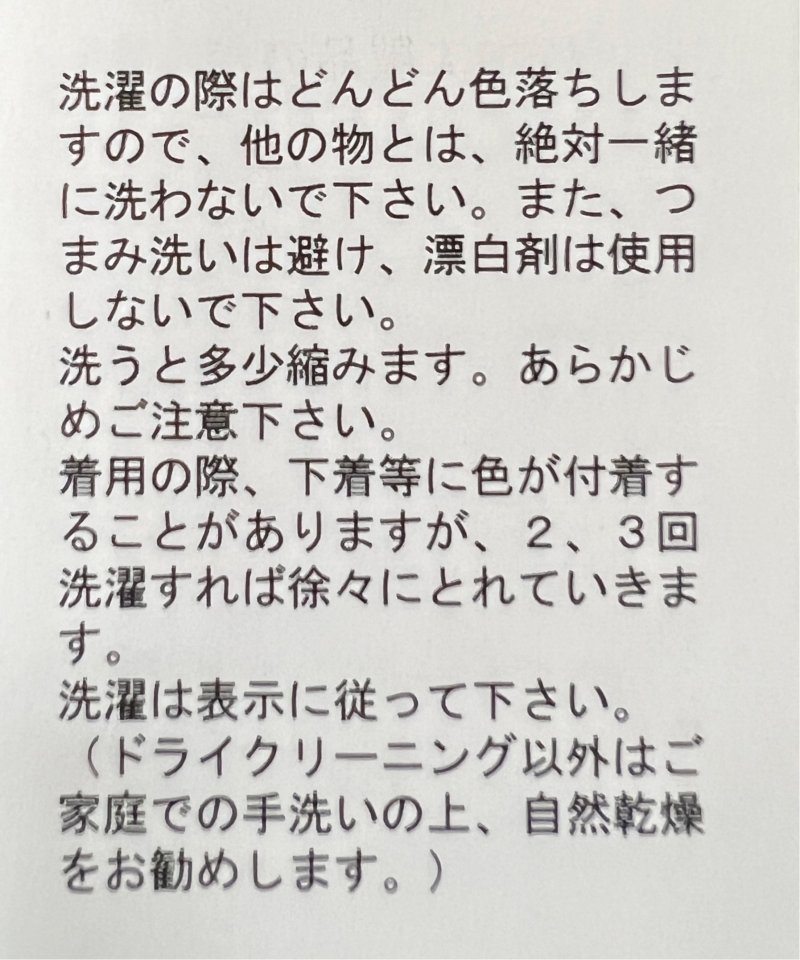 洗濯の際はどんどん色落ちしま
すので、他の物とは、絶対一緒
に洗わないで下さい。また、つ
まみ洗いは避け、漂白剤は使用
しないで下さい。
洗うと多少縮みます。あらかじ
めご注意下さい。
着用の際、下着等に色が付着す
ることがありますが、２、３回
洗濯すれば徐々にとれていきま
す。
洗濯は表示に従って下さい。
（ドライクリーニング以外はご
家庭での手洗いの上、自然乾燥
をお勧めします。）